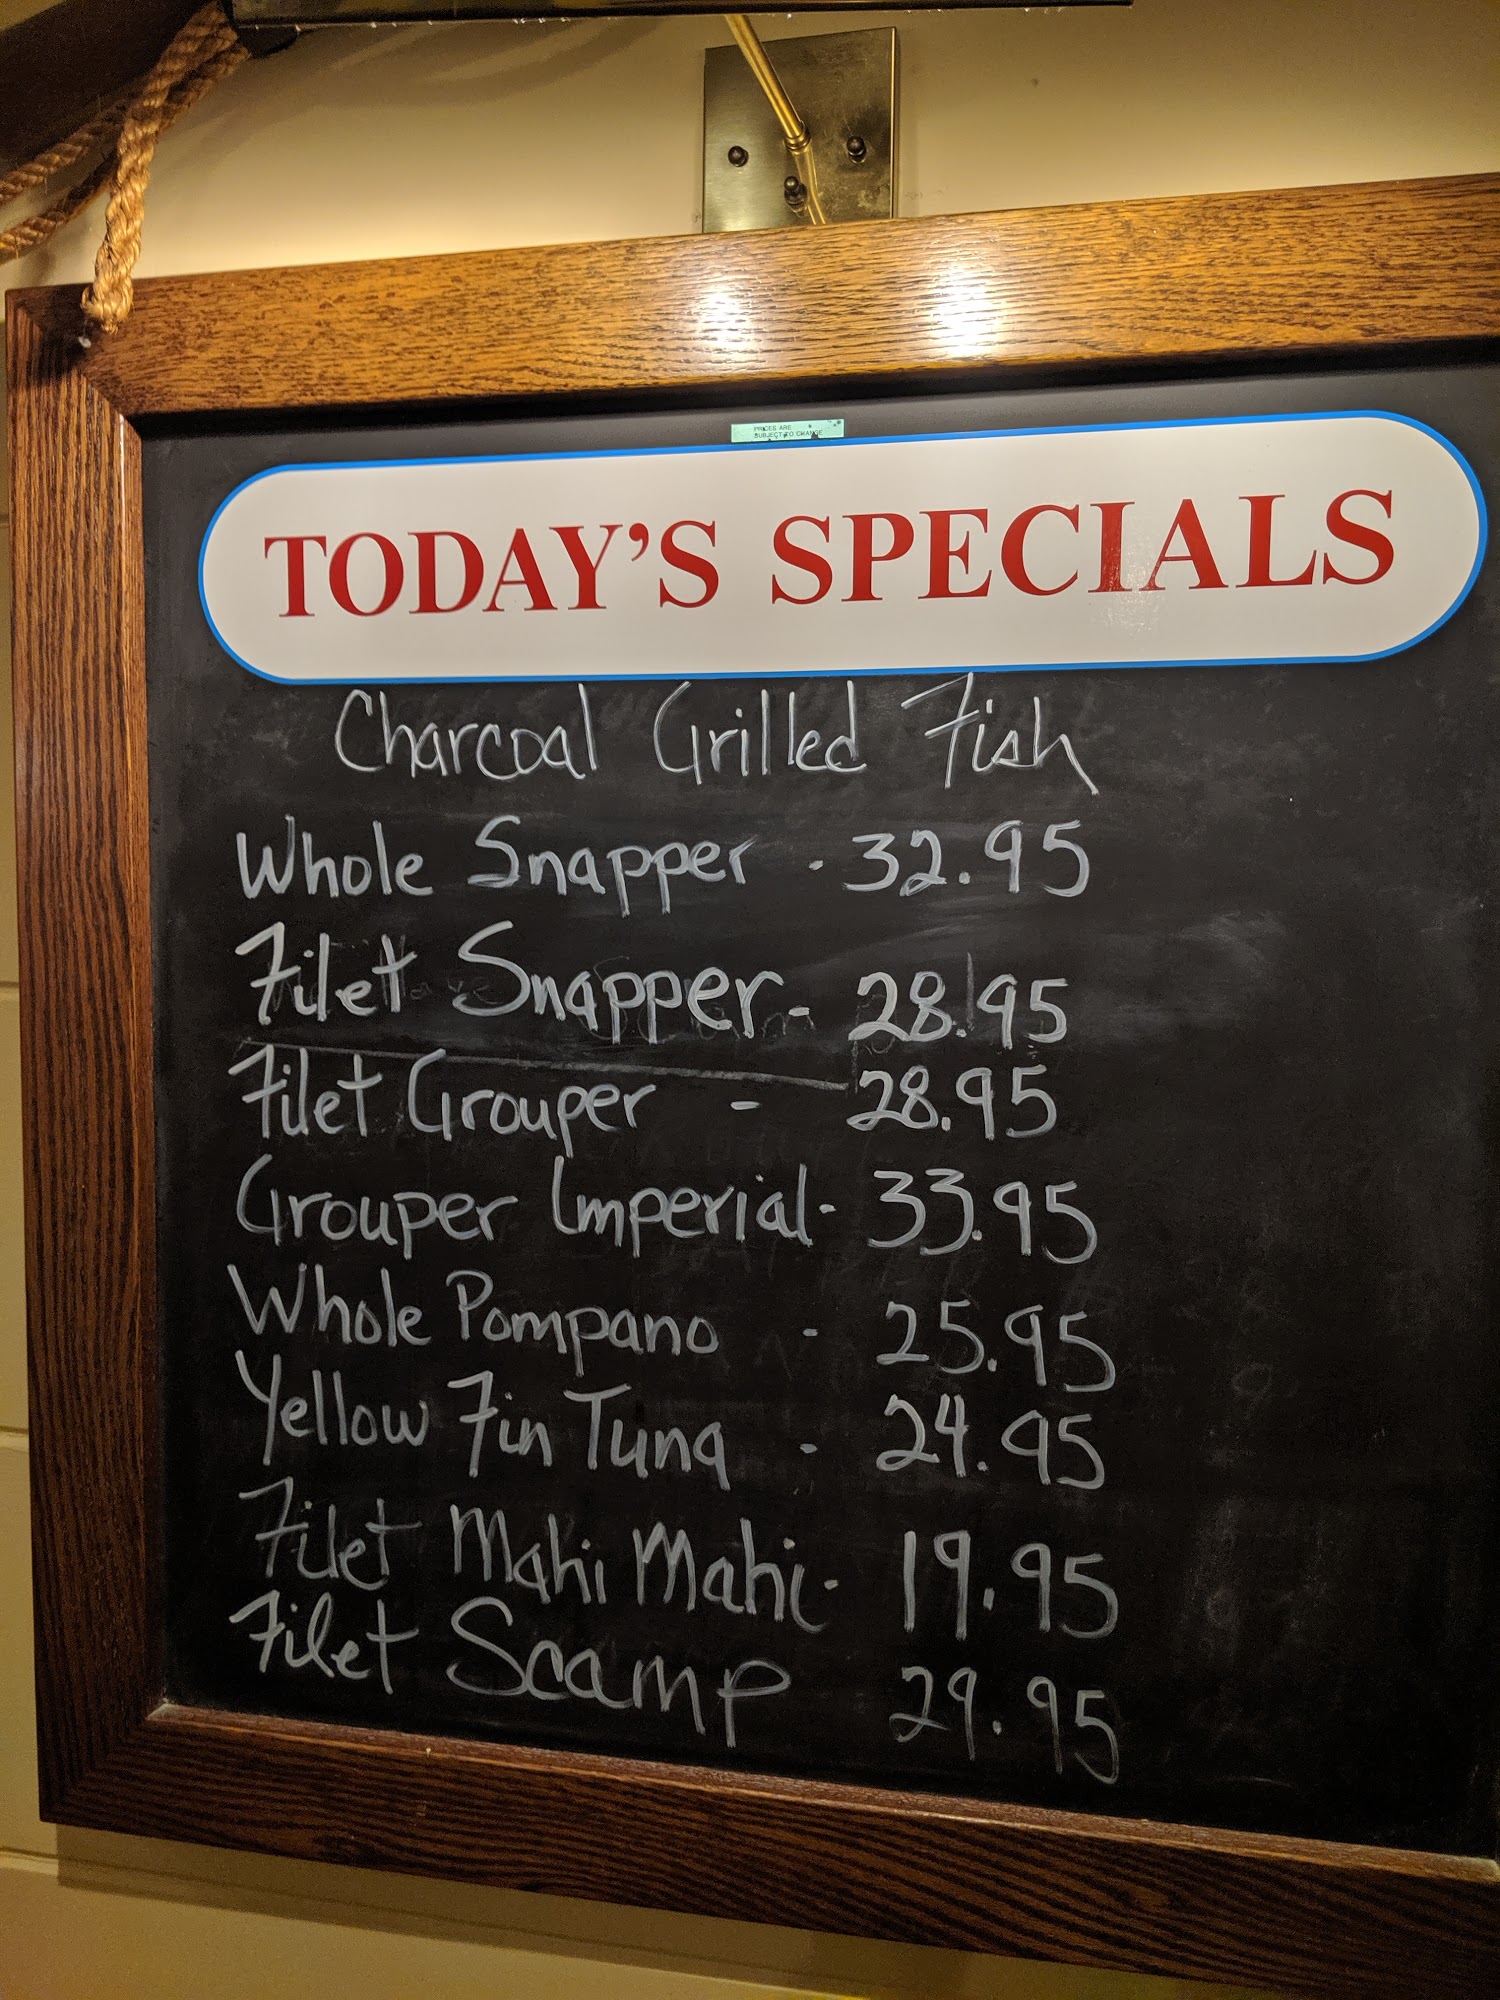 PRICES ARE
SUBJECT TO CHANGE
TODAY'S SPECIALS
Charcoal Grilled Fish
Whole Snapper - 32.95
Filet Snapper - 28.95
Filet Grouper - 28.95
Grouper Imperial - 33.95
Whole Pompano - 25.95
Yellow Fin Tuna - 24.95
Filet Mahi Mahi - 19.95
Filet Scamp 29.95